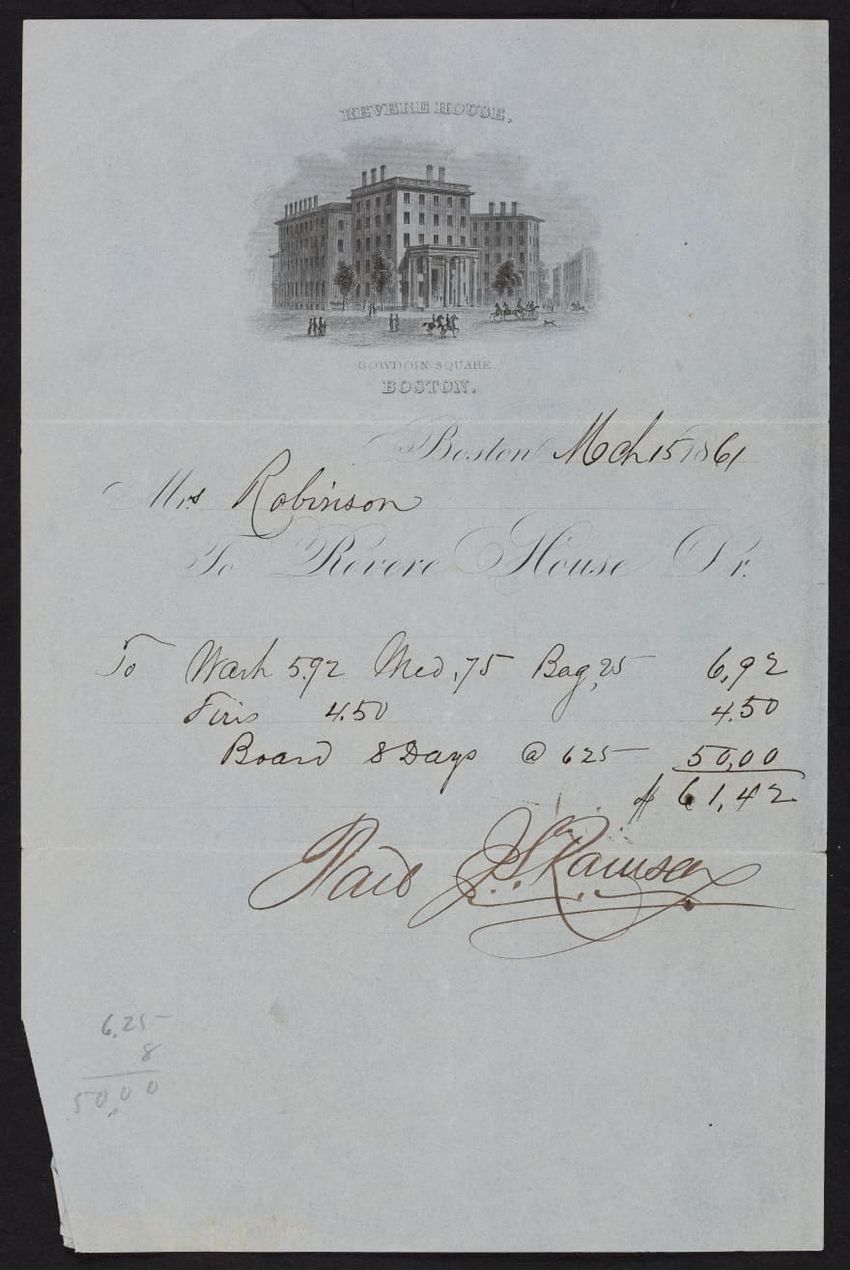 REVERE HOUSE,
BOWDOIN SQUARE
BOSTON.
Boston Mch 15 1861
Mrs Robinson
To Revere House Dr.
To Wash 5.92 Med .75 Bag ,25 6,92
Firs 4.50 4.50
Board 8 Days @ 625 50,00
$ 61,42
Paid J.S.
6,25
8
50,00